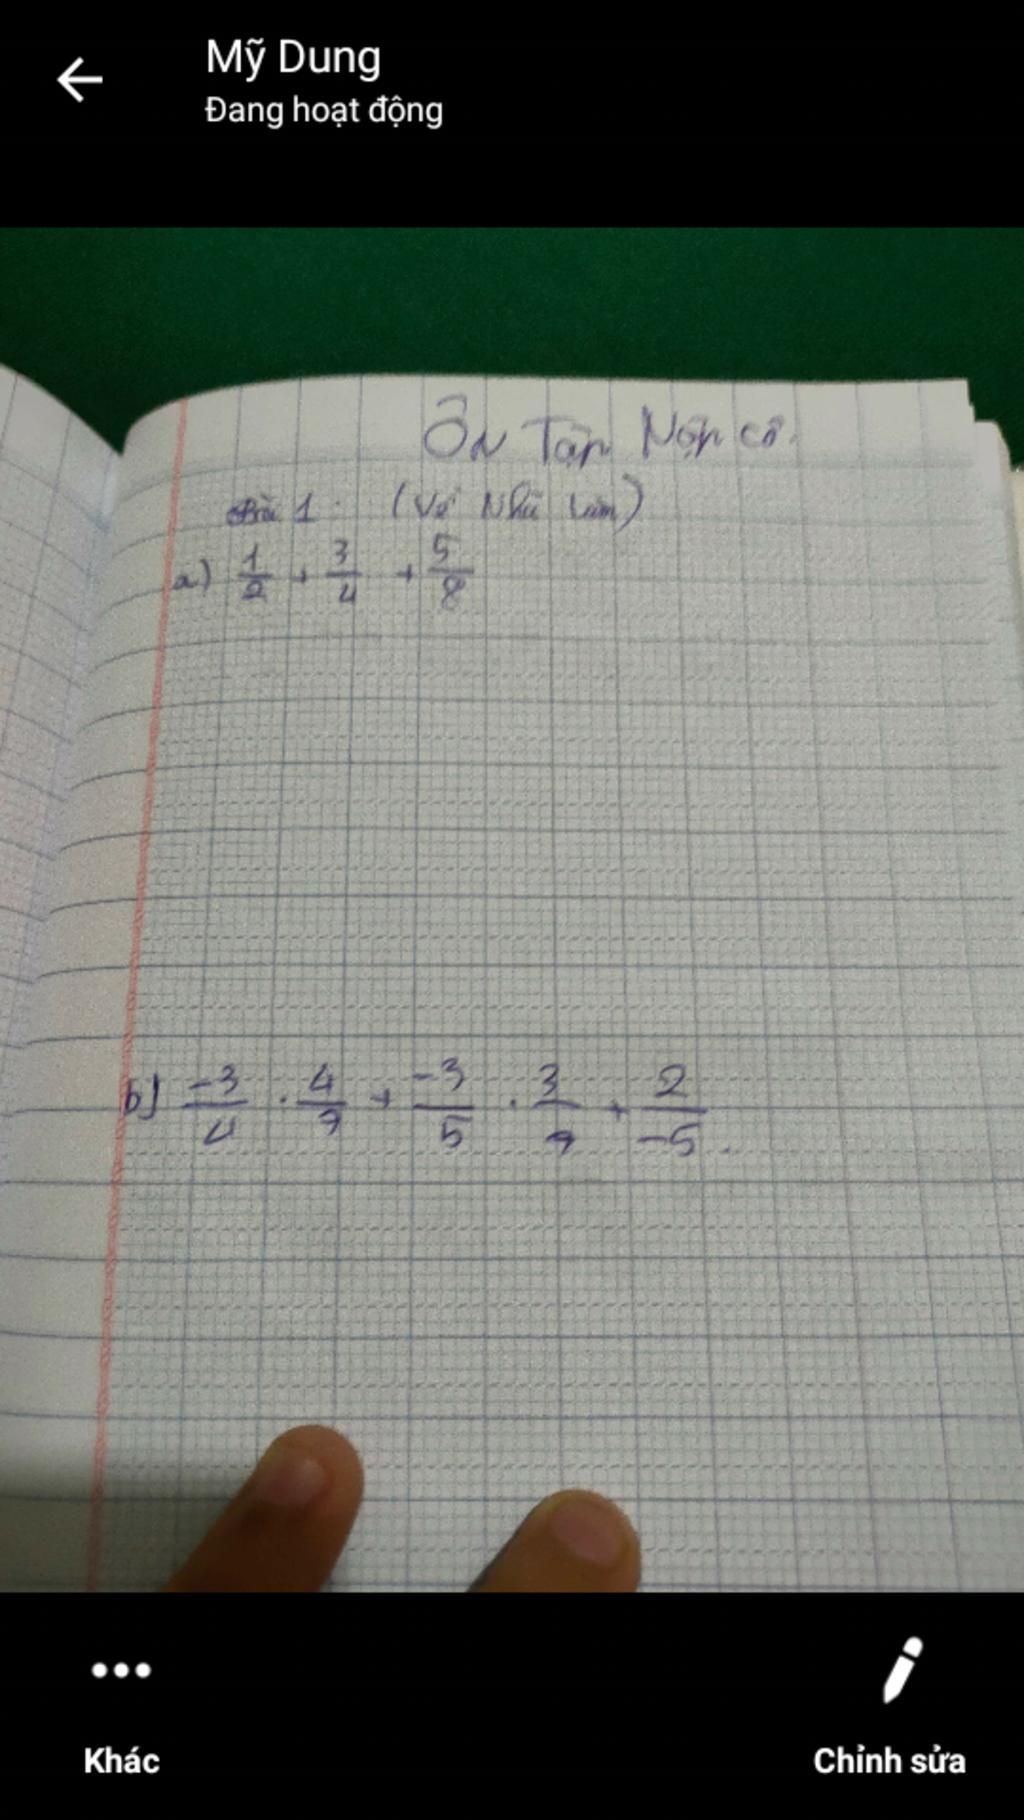 Mỹ Dung
Đang hoạt động
Ôn Tập Nộp cô.
Bài 1: (Về Nhà Làm)
a) 1/2 + 3/4 + 5/8
b) -3/4 . 4/7 + -3/5 . 3/7 + 2/-5.
Khác
Chỉnh sửa